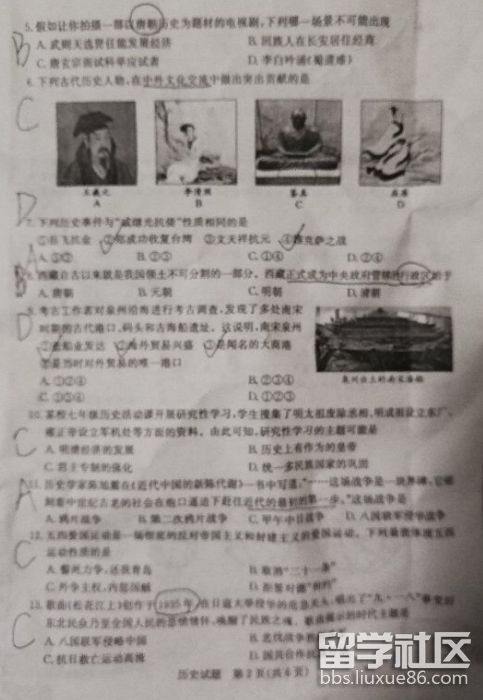 5.假如让你拍摄一部以唐朝历史为题材的电视剧,下列哪一场景不可能出现
B
A.武则天选贤任能发展经济 B.回族人在长安居住经商
C.唐玄宗面试科举应试者 D.李白吟诵《蜀道难》
6.下列古代历史人物,在中外文化交流中做出突出贡献的是
C
王羲之 李清照 鉴真 屈原
A B C D
D
7.下列历史事件与“戚继光抗倭”性质相同的是
①岳飞抗金 ②郑成功收复台湾 ③文天祥抗元 ④雅克萨之战
A.①② B.②③ C.①④ D.②④
8.西藏自古以来就是我国领土不可分割的一部分。西藏正式成为中央政府管辖的行政区始于
B
A.唐朝 B.元朝 C.明朝 D.清朝
9.考古工作者对泉州沿海进行考古调查,发现了多处南宋
D
时期的古代港口、码头和古海船遗址。这说明,南宋泉州
①造船业发达 ②海外贸易兴盛 ③是闻名的大商港
④是当时对外贸易的唯一港口
泉州出土的南宋海船
A.①②④ B.②③④
C.①③④ D.①②③
10.某校七年级历史活动课开展研究性学习,学生搜集了明太祖废除丞相、明成祖设立东厂、
雍正帝设立军机处等方面的资料。由此可知,研究性学习的主题可能是
C
A.明清经济的发展 B.历史上有作为的皇帝
C.君主专制的强化 D.统一多民族国家的巩固
11.历史学家陈旭麓在《近代中国的新陈代谢》一书中写道:“……这场战争是一块界碑,它铭
A
刻着中世纪古老的社会在炮口逼迫下赶往近代的最初的第一步。”这场战争是
A.鸦片战争 B.第二次鸦片战争 C.甲午中日战争 D.八国联军侵华战争
12.五四爱国运动是一场彻底的反对帝国主义和封建主义的爱国运动。下列最能体现五四
运动性质的是
C
A.誓死力争,还我青岛 B.取消“二十一条”
C.外争主权,内惩国贼 D.拒签对德“和约”
13.歌曲《松花江上》创作于1935年,在日寇大举侵华的危急关头,唱出了“九·一八”事变后
东北民众乃至全国人民的悲愤情怀,唤醒了民族之魂。歌曲揭示的时代主题是
C
A.八国联军侵略中国
C.抗日救亡运动高涨
历史试题 第2页(共6页)
留学社区
bbs.liuxue86.com